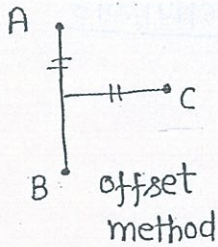 A
C
B
offset
method